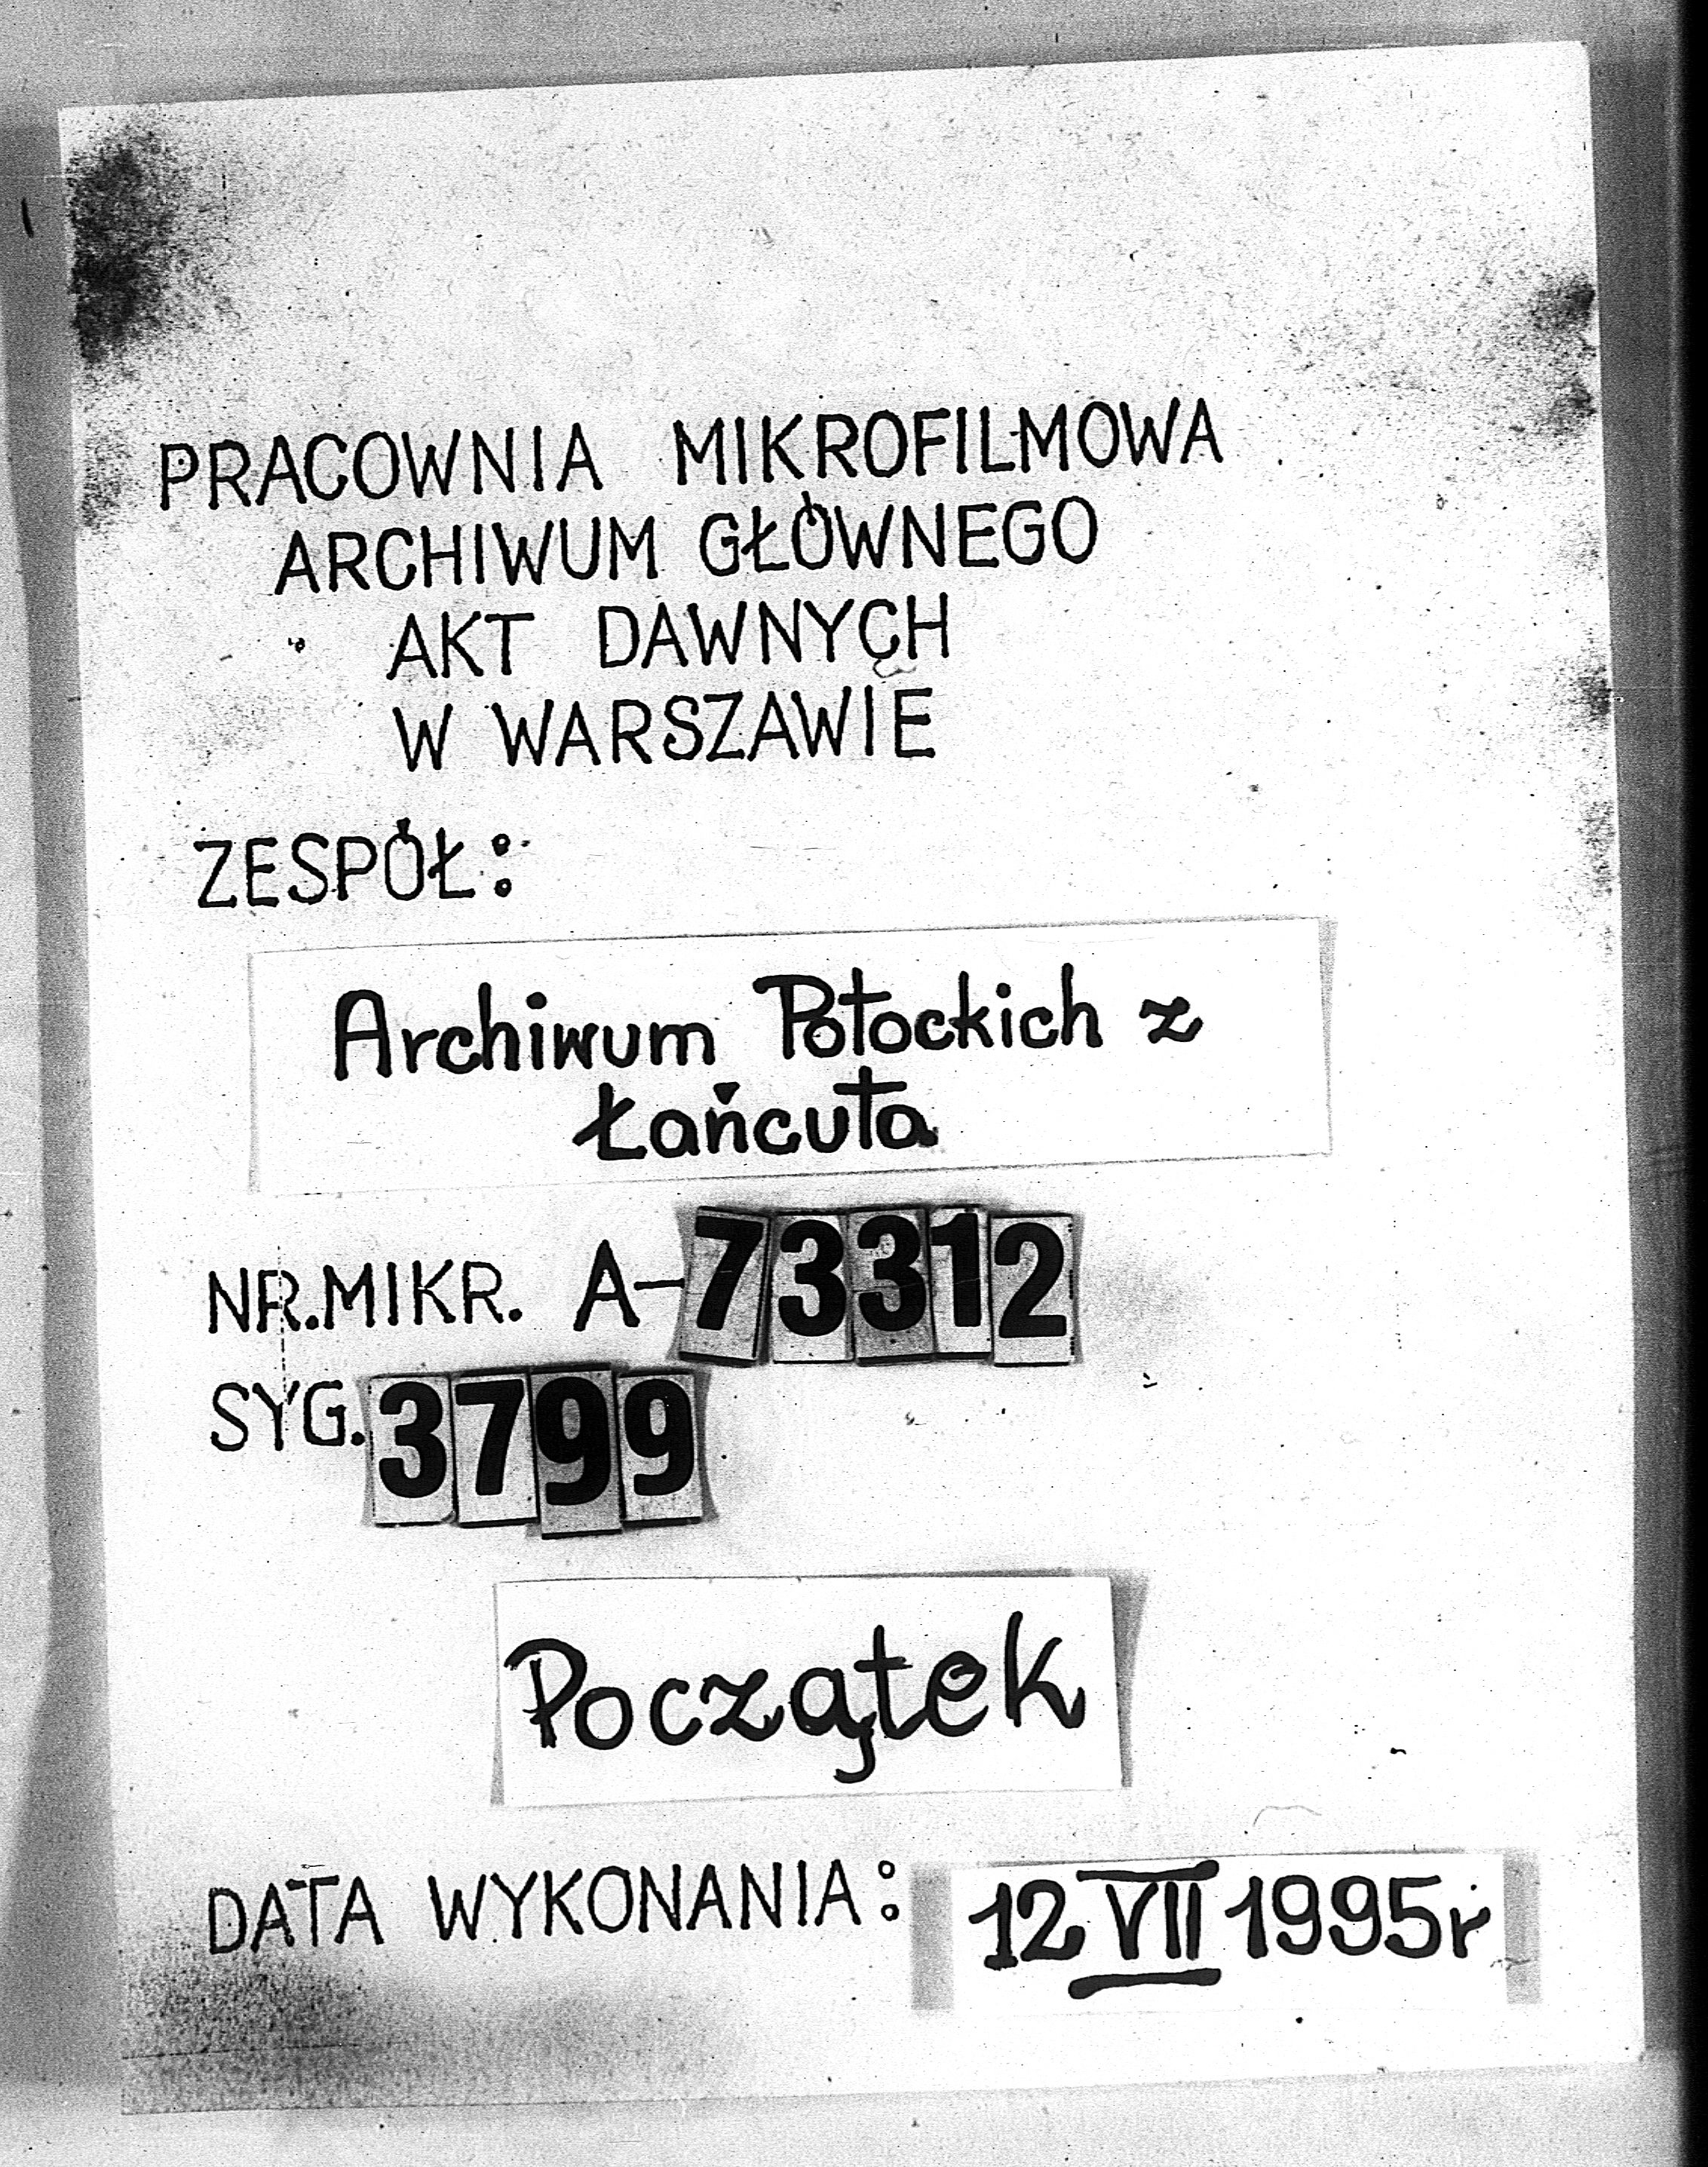 PRACOWNIA MIKROFILMOWA
ARCHIWUM GŁÓWNEGO
AKT DAWNYCH
W WARSZAWIE
ZESPÓŁ:
Archiwum Potockich z
Łańcuta
NR.MIKR. A-73312
SYG. 3799
Początek
DATA WYKONANIA: 12 VII 1995r